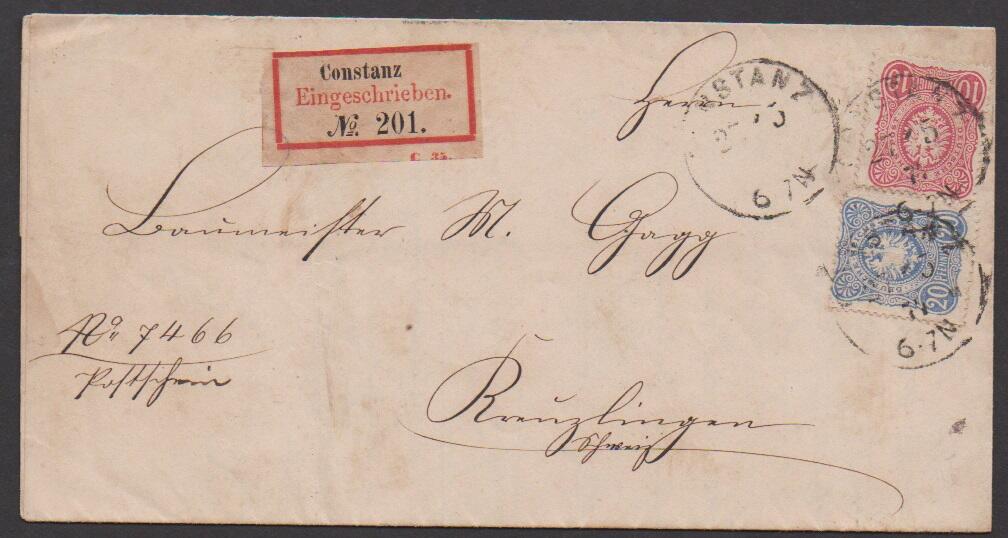 Constanz
Eingeschrieben.
No. 201.
C. 35.
Herrn
Baumeister M. Gagg
No 7466
Postschein
Kreuzlingen
Schweiz
CONSTANZ
6-7N
10
20 PFENNIG
6-7N